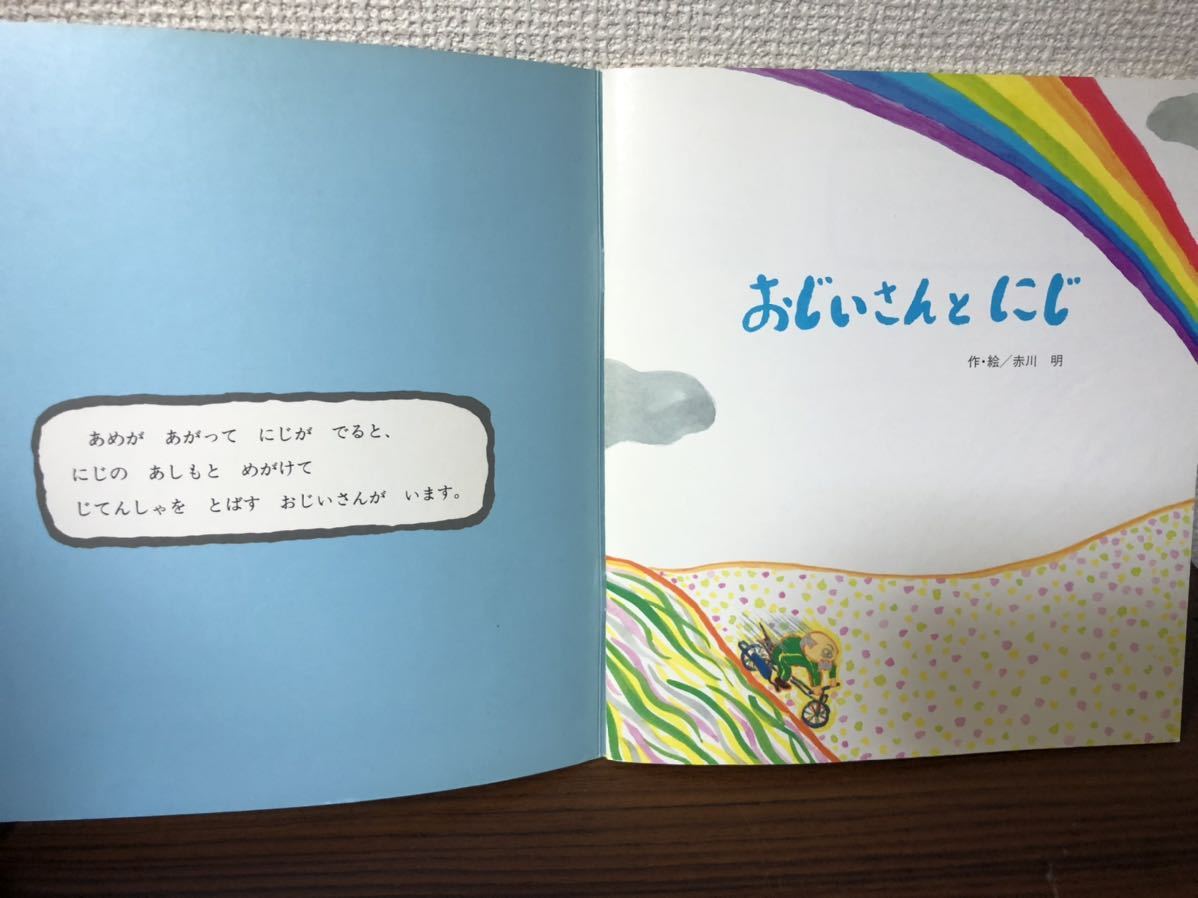 あめが　あがって　にじが　でると、
にじの　あしもと　めがけて
じてんしゃを　とばす　おじいさんが　います。
おじいさんと にじ
作・絵／赤川　明